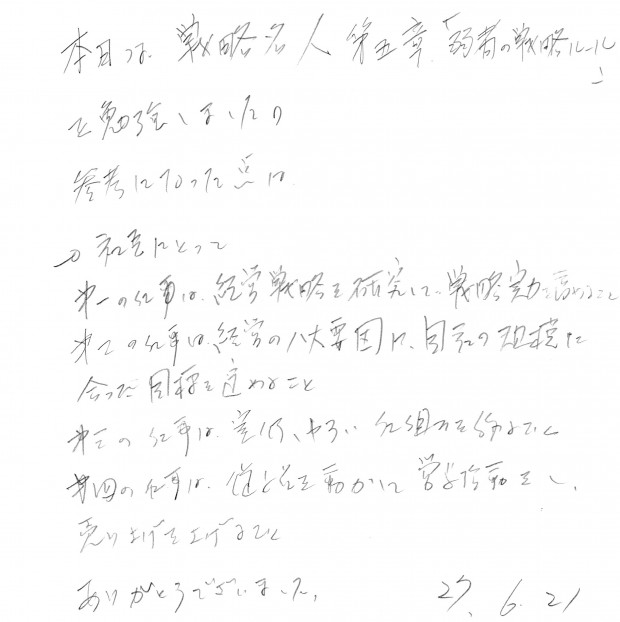 本日は、戦略名人 第五章「弱者の戦略ルール」
を勉強しました。
参考になった点は
1) 社長にとって
第一の仕事は、経営戦略を研究して、戦略実力を高めること
第二の仕事は、経営の八大要因に、自社の規模に
合った目標を定めること
第三の仕事は、実行しやすい仕組みを作ること
第四の仕事は、従業員を動かして営業活動をし、
売り上げを上げること
ありがとうございました。 27. 6. 21